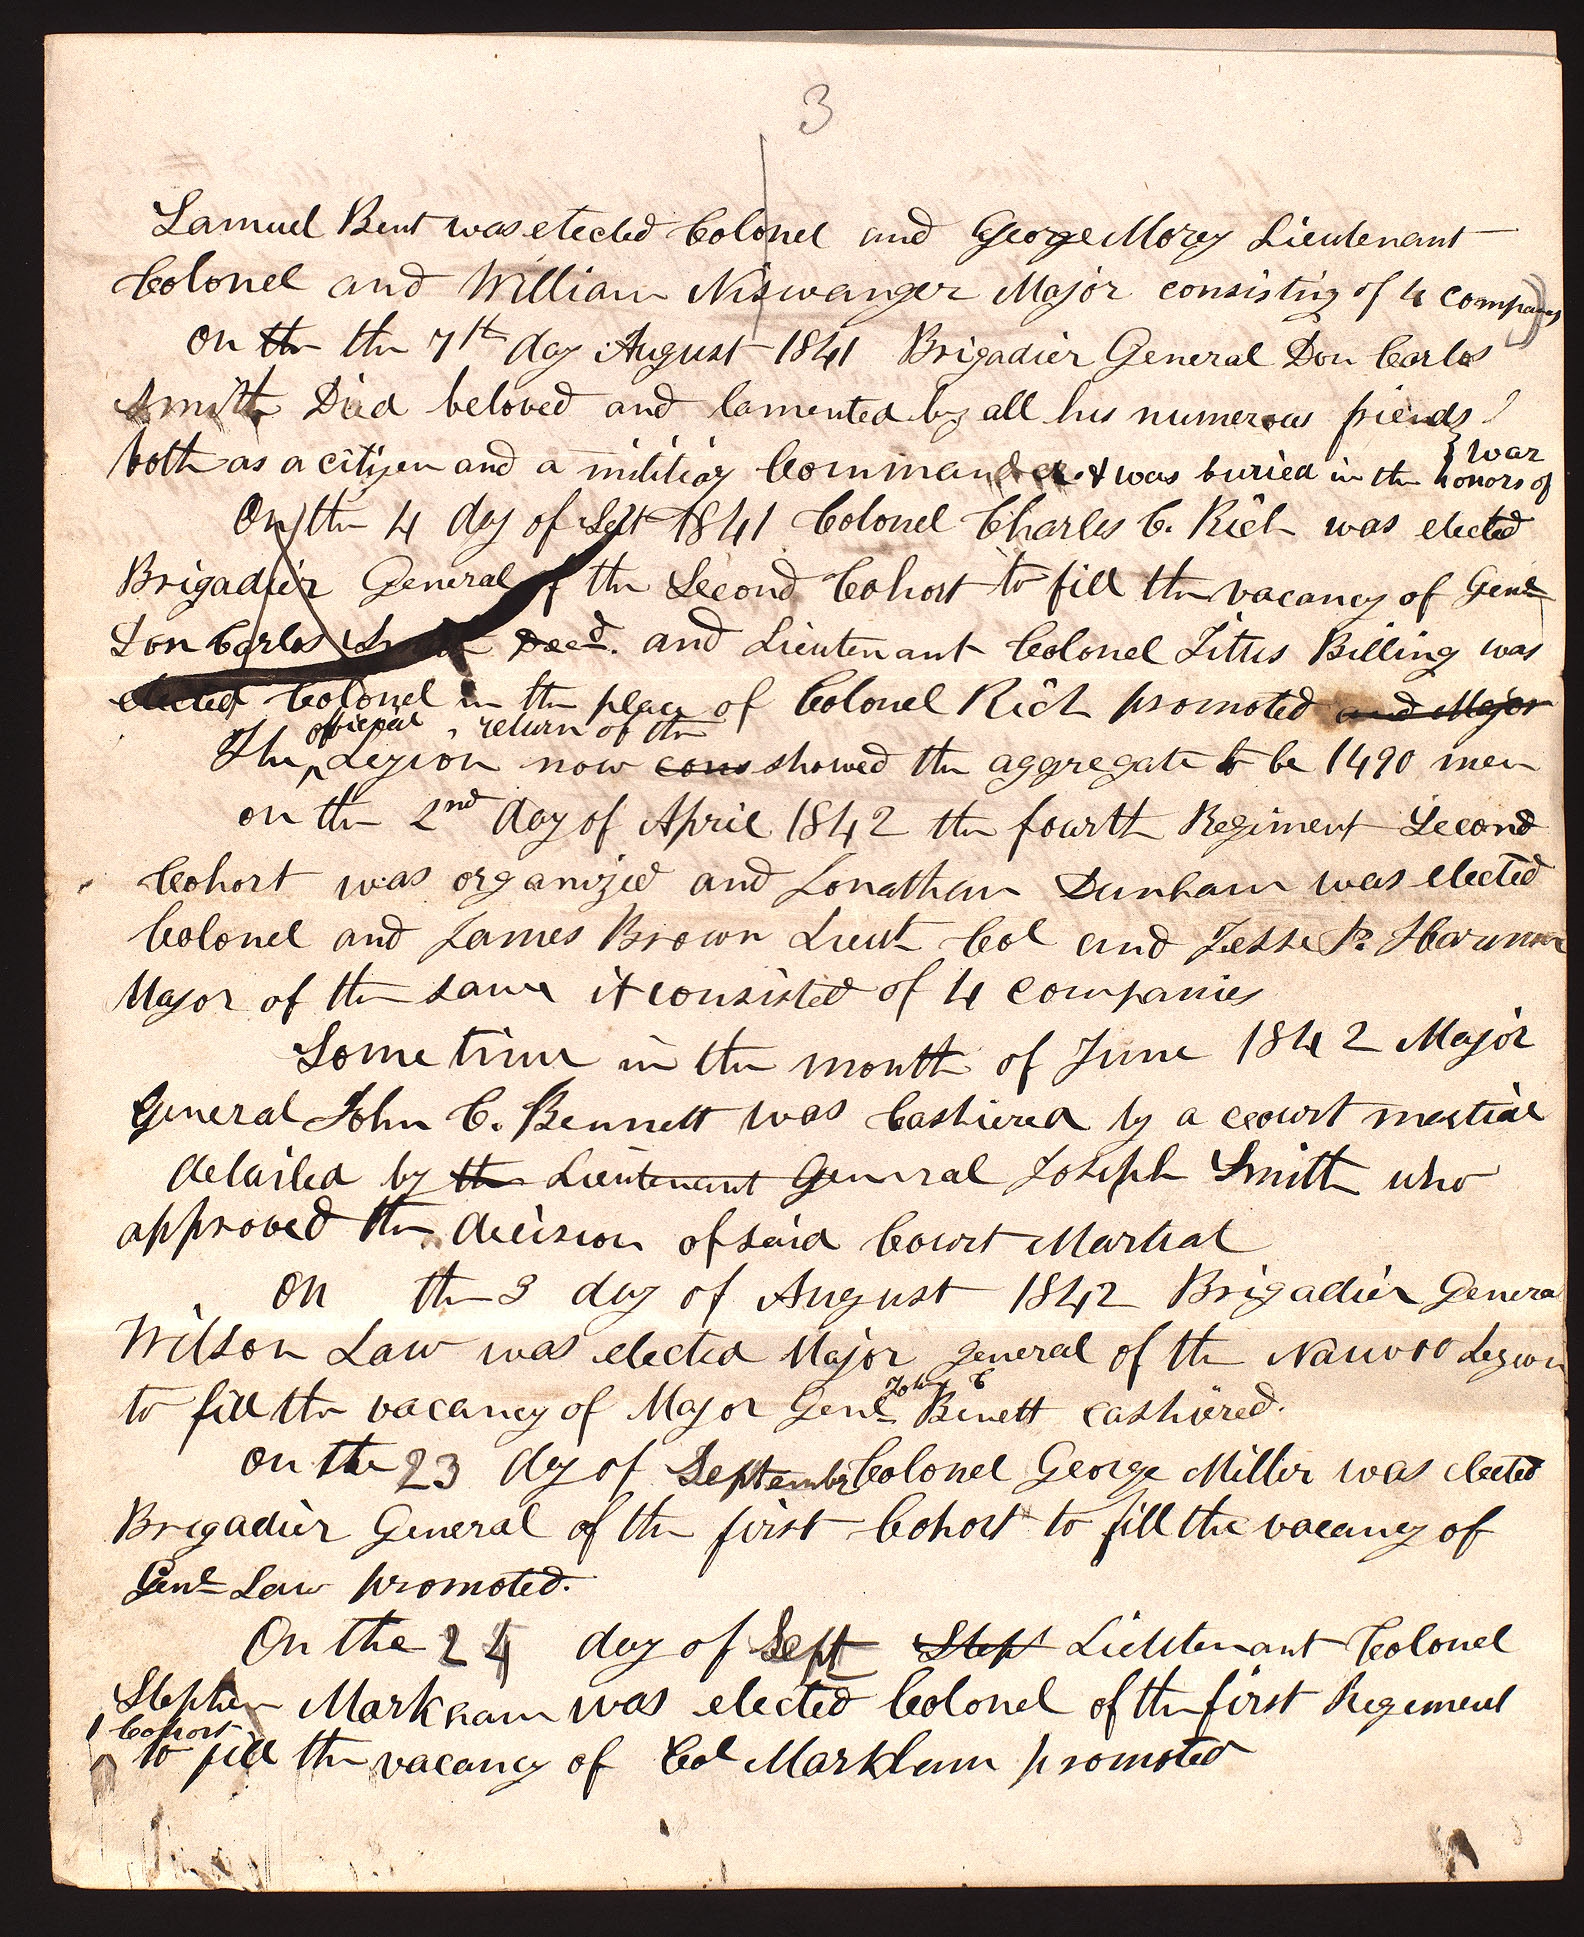 3
Samuel Bent was elected Colonel and George Morey Lieutenant
Colonel and William Niswanger Major consisting of 4 companies
on the the 7th day August 1841 Brigadier General Don Carlos
Smith Died beloved and lamented by all his numerous friends
both as a citizen and a military Commander & was buried in the honors of war
On the 4 day of Sept 1841 Colonel Charles C. Rich was elected
Brigadier General of the Second Cohort to fill the vacancy of Genl
Don Carlos Smith Decd. and Lieutenant Colonel Titus Billing was
elected Colonel in the place of Colonel Rich promoted and Major
official return of the
The Legion now cons showed the aggregate to be 1490 men
on the 2nd day of April 1842 the fourth Regiment Second
Cohort was organized and Jonathan Dunham was elected
Colonel and James Brown Lieut Col and Jesse P. Harmon
Major of the same it consisted of 4 companies
Some time in the month of June 1842 Major
General John C. Bennett was Cashiered by a court martial
detailed by the Lieutenant General Joseph Smith who
approved the decision of said Court Martial
On the 3 day of August 1842 Brigadier General
Wilson Law was elected Major general of the Nauvoo Legion
John C
to fill the vacancy of Major Genl Binett cashiered.
on the 23 day of September Colonel George Miller was elected
Brigadier General of the first Cohort to fill the vacancy of
Genl Law promoted.
On the 24 day of Sept Steph Lieutenant Colonel
Stephen Markham was elected Colonel of the first Regiment
1 Cohort
to fill the vacancy of Col Markham promoted